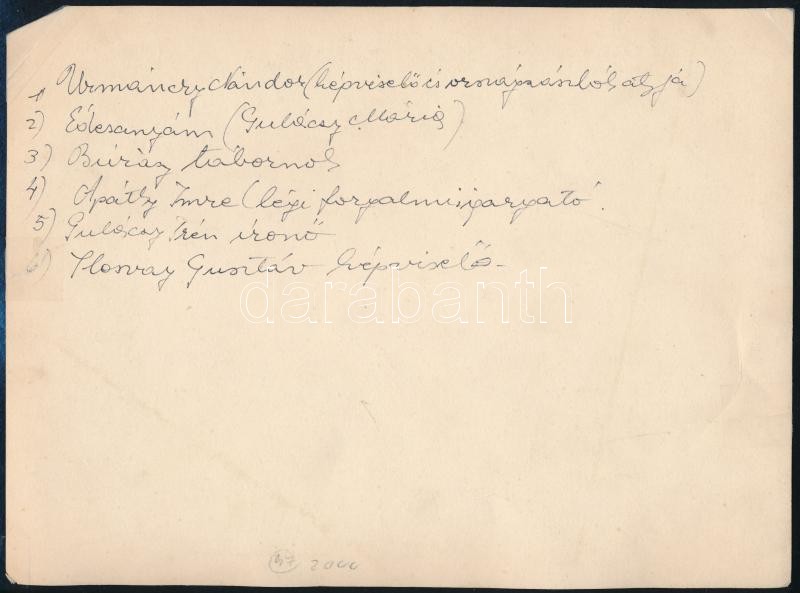 1 Urmánczy Nándor (képviselő és országzászlók atyja)
2) Édesanyám (Gulácsy Mária)
3) Búzáy tábornok
4) Apáthy Imre (légi forgalmi igazgató.
5) Gulácsy Irén írónő
6) Ilosvay Gusztáv képviselő-
darabanth
47 2000